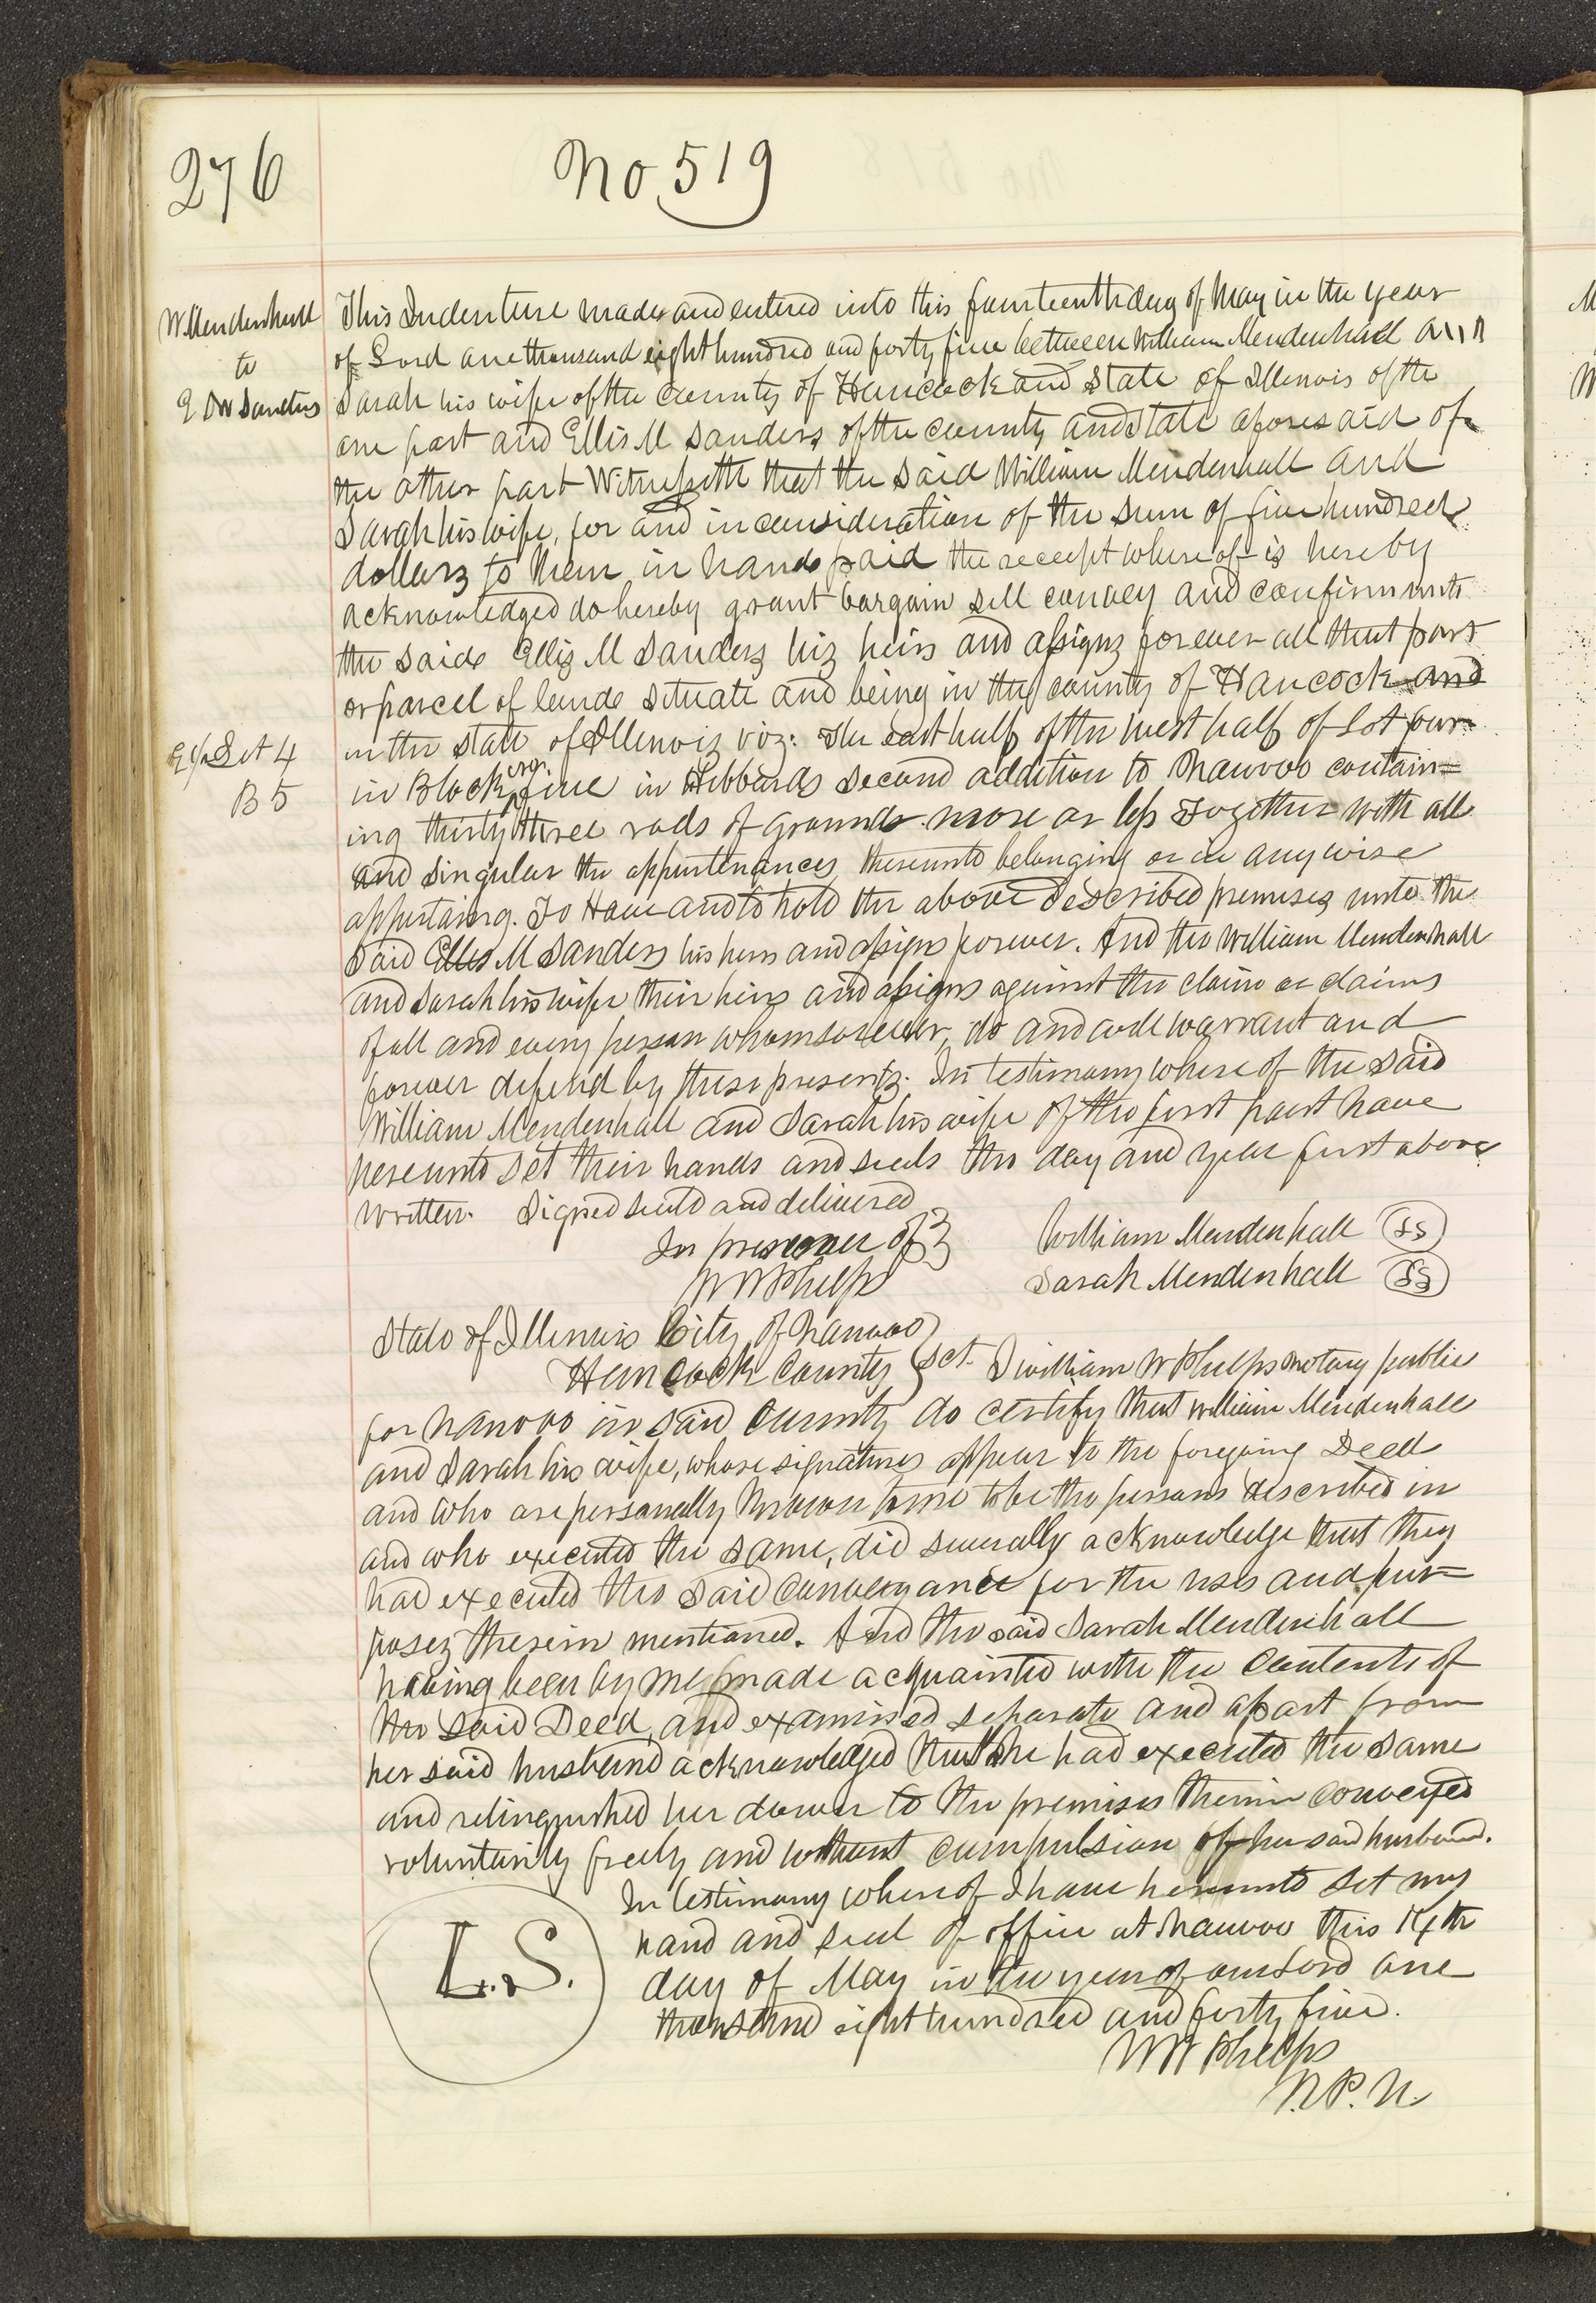 276
No 519
W. Mendenhall
to
E M Sanders
This Indenture made and entered into this fourteenth day of May in the year
of Lord one thousand eight hundred and forty five between William Mendenhall and
Sarah his wife of the County of Hancock and State of Illinois of the
one part and Ellis M Sanders of the county and State aforesaid of
the other part Witnesseth that the said William Mendenhall and
Sarah his wife, for and in consideration of the sum of five hundred
dollars to them in hand paid the receipt whereof is hereby
acknowledged do hereby grant bargain sell convey and confirm unto
the said Ellis M Sanders his heirs and assigns forever all that part
or parcel of land situate and being in the county of Hancock and
in the State of Illinois viz: The East half of the West half of Lot four
E ½ Lot 4
B 5
in Block five in Hibbards Second addition to Nauvoo contain=
ing thirty three rods of ground more or less Together with all
and Singular the appurtenances thereunto belonging or in any wise
appertaing. To Have and to hold the above described premises unto the
Said Ellis M Sanders his heirs and assigns forever. And the William Mendenhall
and Sarah his wife their heirs and assigns against the claim or claims
of all and every person whomsoever, do and will warrant and
forever defend by these presents. In testimony whereof the Said
William Mendenhall and Sarah his wife of the first part have
hereunto set their hands and seals the day and year first above
written. Signed seald and delivered
In presence of }
W W Phelps
William Mendenhall (LS)
Sarah Mendenhall (LS)
State of Illinois City of Nauvoo
Hancock County } Sct. I William W Phelps notary public
for Nauvoo in said County do certify that William Mendenhall
and Sarah his wife, whose signatures appear to the foregoing Deed
and who are personally known to me to be the persons described in
and who executed the same, did severally acknowledge that they
had executed the said Conveyance for the uses and pur=
poses therein mentioned. And the said Sarah Mendenhall
having been by me made acquainted with the Contents of
the said Deed, and examined separate and apart from
her said husband acknowledged that she had executed the same
and relinquished her dower to the premises therein conveyed
voluntarily freely and without compulsion of her said husband.
In testimony whereof I have hereunto set my
hand and seal of office at Nauvoo this 14th
L.S.
day of May in the year of our Lord one
thousand eight hundred and forty five.
W W Phelps
N. P. N.